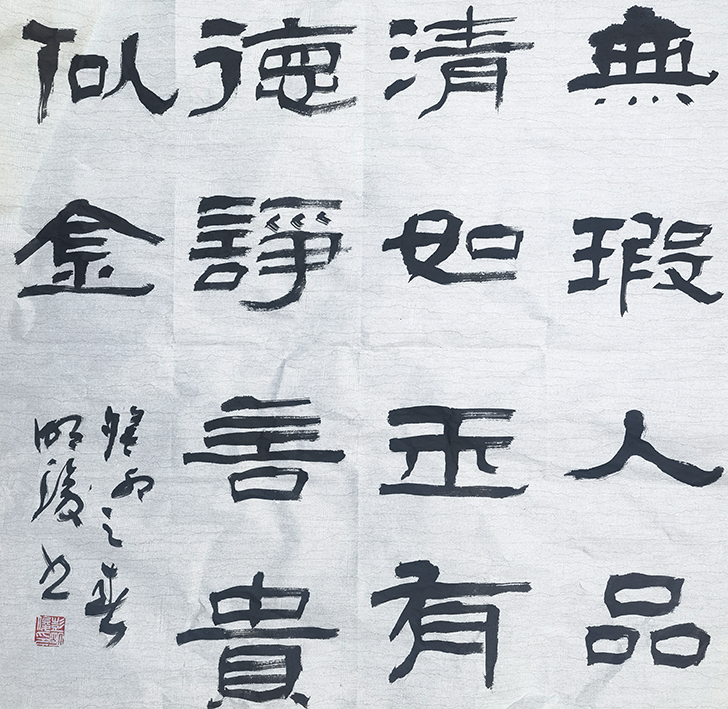 無瑕人品
清如玉有
德諍言貴
似金
癸卯之春
明书